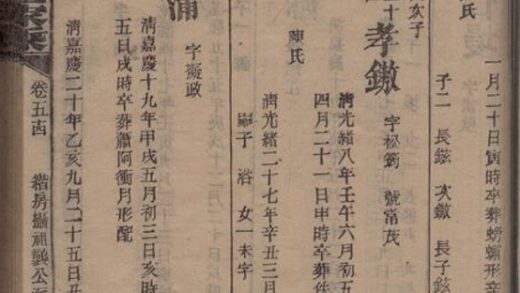 一月二十日寅時卒葬螃蠏形辛
子二 長鉉 次鏾 長子鉉
氏
次子
十
孝鏾 字松筠 號富茂
清光緒八年壬午六月初五
四月二十一日申時卒葬
陳氏
清光緒二十七年辛丑三月
嗣子 浴 女一未字
浦 字擬政
清嘉慶十九年甲戌五月初三日亥時
五日戌時卒葬蕭阿衝月形配
清嘉慶二十年乙亥九月二十五日丑
卷五
楷房攝祖龔公